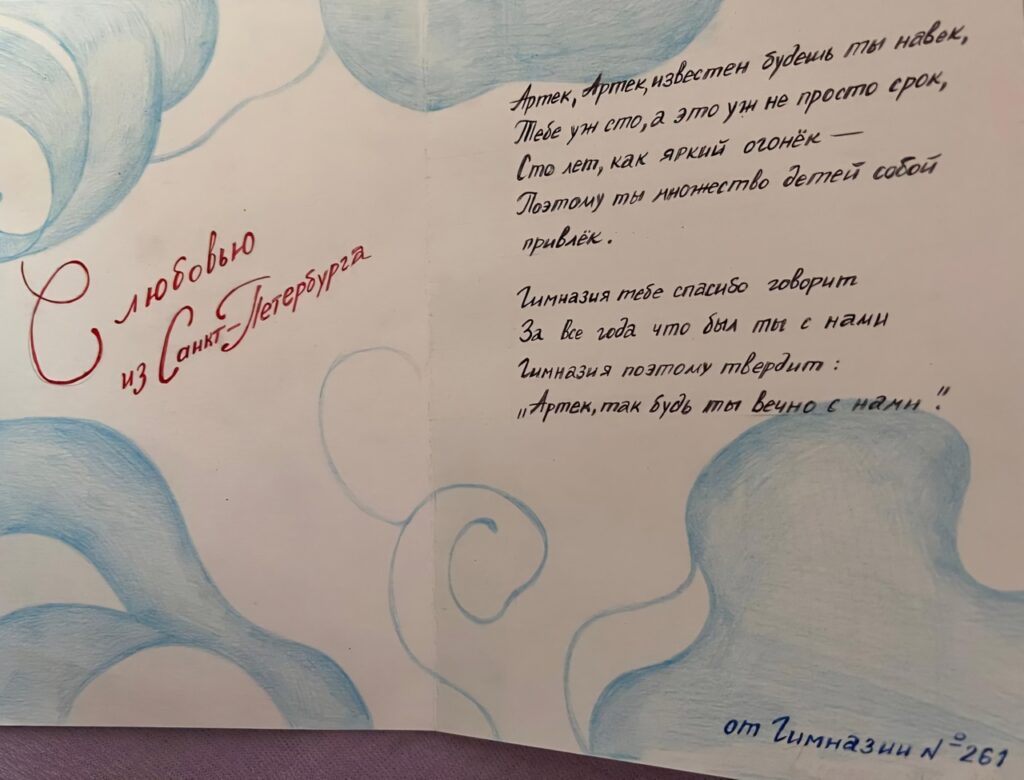 С любовью
из Санкт-Петербурга
Артек, Артек, известен будешь ты навек,
Тебе уж сто, а это уж не просто срок,
Сто лет, как яркий огонёк —
Поэтому ты множество детей собой
привлёк.
Гимназия тебе спасибо говорит
За все года что был ты с нами
Гимназия поэтому твердит:
„Артек, так будь ты вечно с нами".
от Гимназии № 261